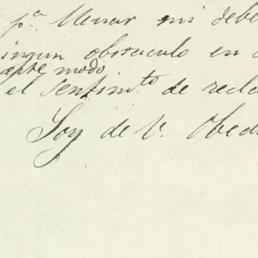 pª llenar mi debe
ingun obstaculo en
este modo
el sentimto de recla
Soy de V. Obed